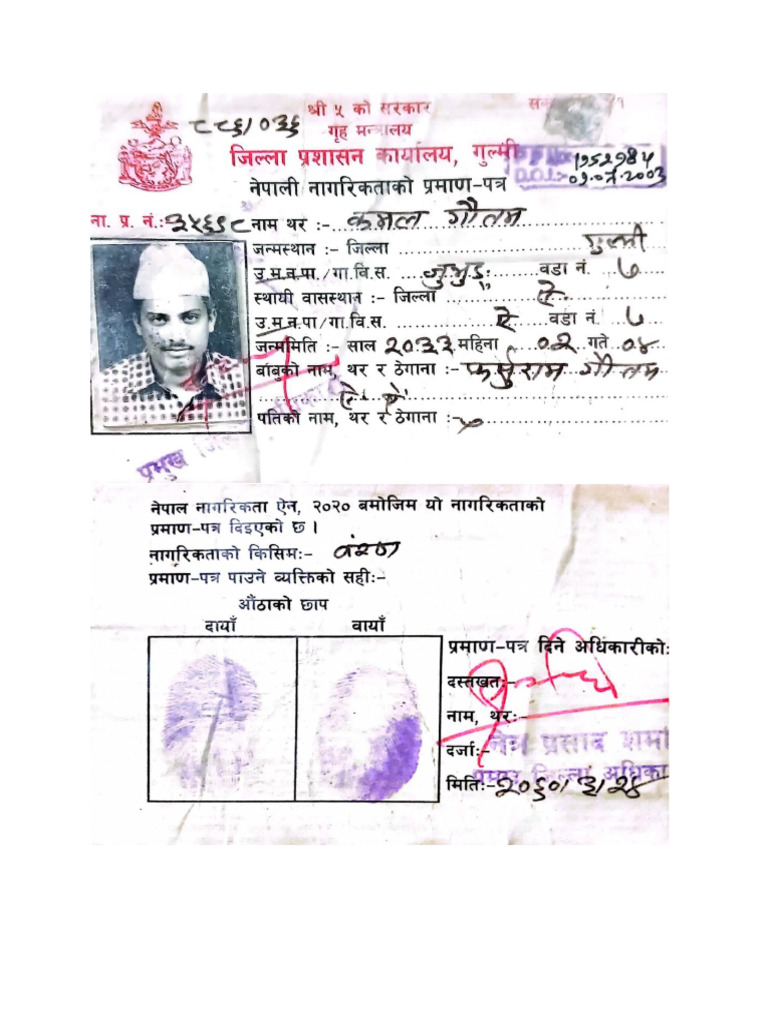 श्री ५ को सरकार
गृह मन्त्रालय
जिल्ला प्रशासन कार्यालय, गुल्मी
1752984
07.07.2003
नेपाली नागरिकताको प्रमाण-पत्र
ना. प्र. नं.:
नाम थर :- कमल गौतम
जन्मस्थान :- जिल्ला गुल्मी
उ.म.न.पा./गा.वि.स. वडा नं. ७
स्थायी वासस्थान :- जिल्ला ऐ.
उ.म.न.पा/गा.वि.स. ऐ वडा नं. ७
जन्ममिति :- साल २०३३ महिना ०२ गते ०४
बाबुको नाम, थर र ठेगाना :- फर्सुराम गौतम
ऐ ऐ
पतिको नाम, थर र ठेगाना :-
प्रमुख
नेपाल नागरिकता ऐन, २०२० बमोजिम यो नागरिकताको
प्रमाण-पत्र दिइएको छ ।
नागरिकताको किसिमः- वंशज
प्रमाण-पत्र पाउने व्यक्तिको सहीः-
औंठाको छाप
दायाँ वायाँ
प्रमाण-पत्र दिने अधिकारीकोः
दस्तखतः-
नाम, थरः-
प्रसाद शर्मा
दर्जाः-
प्रमुख जिल्ला अधिका
मितिः- २०६०।३।२४